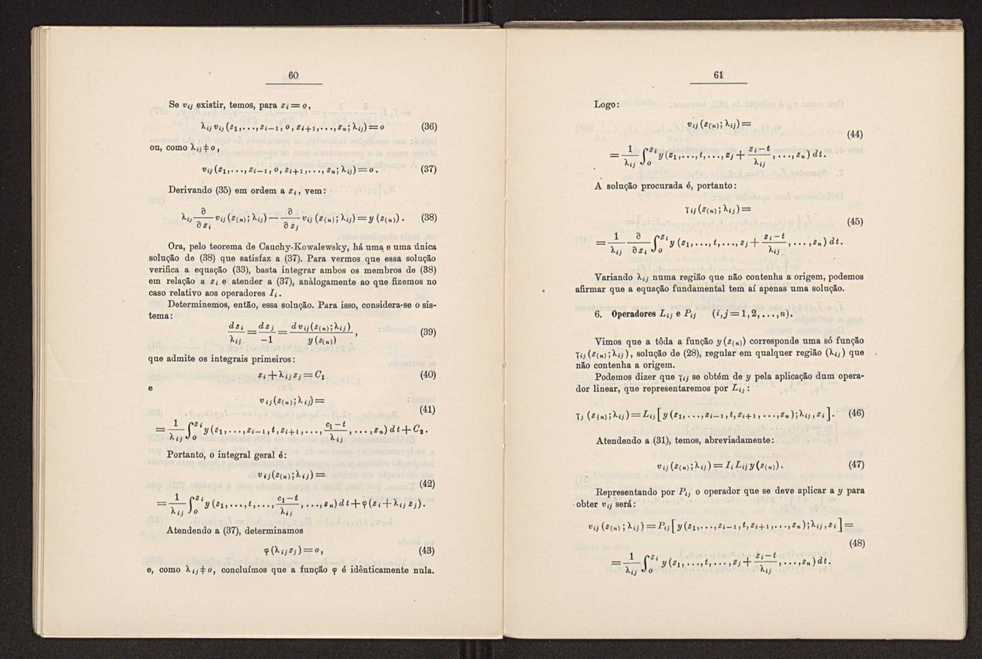 60
Se v_ij existir, temos, para z_i = o,
λ_ij v_ij (z_1, ..., z_{i−1}, o, z_{i+1}, ..., z_n; λ_ij) = o (36)
ou, como λ_ij ≠ o,
v_ij (z_1, ..., z_{i−1}, o, z_{i+1}, ..., z_n; λ_ij) = o. (37)
Derivando (35) em ordem a z_i, vem:
λ_ij ∂/∂z_i v_ij (z_(n); λ_ij) − ∂/∂z_j v_ij (z_(n); λ_ij) = y (z_(n)). (38)
Ora, pelo teorema de Cauchy-Kowalewsky, há uma e uma única
solução de (38) que satisfaz a (37). Para vermos que essa solução
verifica a equação (33), basta integrar ambos os membros de (38)
em relação a z_i e atender a (37), anàlogamente ao que fizemos no
caso relativo aos operadores I_i.
Determinemos, então, essa solução. Para isso, considera-se o sis-
tema:
dz_i/λ_ij = dz_j/−1 = dv_ij (z_(n); λ_ij)/y (z_(n)), (39)
que admite os integrais primeiros:
z_i + λ_ij z_j = C_1 (40)
e
v_ij (z_(n); λ_ij) =
(41)
= 1/λ_ij ∫_o^{z_i} y (z_1, ..., z_{i−1}, t, z_{i+1}, ..., (c_1 − t)/λ_ij, ..., z_n) dt + C_2.
Portanto, o integral geral é:
v_ij (z_(n); λ_ij) =
(42)
= 1/λ_ij ∫_o^{z_i} y (z_1, ..., t, ..., (c_1 − t)/λ_ij, ..., z_n) dt + φ (z_i + λ_ij z_j).
Atendendo a (37), determinamos
φ (λ_ij z_j) = o, (43)
e, como λ_ij ≠ o, concluímos que a função φ é idênticamente nula.
61
Logo:
v_ij (z_(n); λ_ij) =
(44)
= 1/λ_ij ∫_o^{z_i} y (z_1, ..., t, ..., z_j + (z_i − t)/λ_ij, ..., z_n) dt.
A solução procurada é, portanto:
γ_ij (z_(n); λ_ij) =
(45)
= 1/λ_ij ∂/∂z_i ∫_o^{z_i} y (z_1, ..., t, ..., z_j + (z_i − t)/λ_ij, ..., z_n) dt.
Variando λ_ij numa região que não contenha a origem, podemos
afirmar que a equação fundamental tem aí apenas uma solução.
6. Operadores L_ij e P_ij (i, j = 1, 2, ..., n).
Vimos que a tôda a função y (z_(n)) corresponde uma só função
γ_ij (z_(n); λ_ij), solução de (28), regular em qualquer região (λ_ij) que
não contenha a origem.
Podemos dizer que γ_ij se obtém de y pela aplicação dum opera-
dor linear, que representaremos por L_ij:
γ_j (z_(n); λ_ij) = L_ij [y (z_1, ..., z_{i−1}, t, z_{i+1}, ..., z_n); λ_ij, z_i]. (46)
Atendendo a (31), temos, abreviadamente:
v_ij (z_(n); λ_ij) = I_i L_ij y (z_(n)). (47)
Representando por P_ij o operador que se deve aplicar a y para
obter v_ij será:
v_ij (z_(n); λ_ij) = P_ij [y (z_1, ..., z_{i−1}, t, z_{i+1}, ..., z_n); λ_ij, z_i] =
(48)
= 1/λ_ij ∫_o^{z_i} y (z_1, ..., t, ..., z_j + (z_i − t)/λ_ij, ..., z_n) dt.